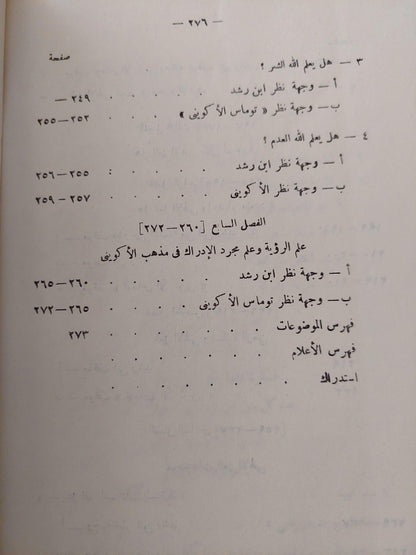 — ٢٧٦ —
صفحة
٣ — هل يعلم الله الشر ؟
أ — وجهة نظر ابن رشد . . . . . ٢٤٩ —
ب — وجهة نظر « توماس الأكوينى » . . ٢٥٢ — ٢٥٥
٤ — هل يعلم الله العدم ؟
أ — وجهة نظر ابن رشد . . . . : ٢٥٥ — ٢٥٦
ب — وجهة نظر الأكوينى . . . . . ٢٥٧ — ٢٥٩
الفصل السابع [ ٢٦٠ — ٢٧٢ ]
علم الرؤية وعلم مجرد الإدراك فى مذهب الأكوينى
أ — وجهة نظر ابن رشد . . . . . ٢٦٠ — ٢٦٥
ب — وجهة نظر توماس الأكوينى . . . . ٢٦٥ — ٢٧٢
فهرس الموضوعات . . . . . . ٢٧٣
فهرس الأعلام . . . . . .
استدراك . . . . . . .